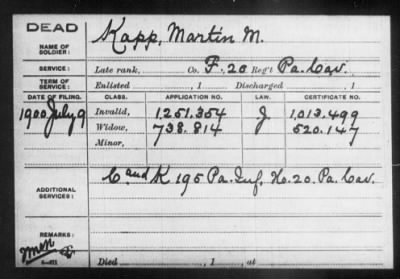 DEAD
NAME OF SOLDIER: Kapp, Martin M.
SERVICE: Late rank, Co. F. 20 Reg't Pa. Cav.
TERM OF SERVICE: Enlisted , 1 Discharged , 1
DATE OF FILING. CLASS. APPLICATION NO. LAW. CERTIFICATE NO.
1900 July 9 Invalid, 1,251.354 J. 1,013.499
Widow, 738.814 520.147
Minor,
ADDITIONAL SERVICES: C and K 195 Pa. Inf. H. 20. Pa. Cav.
REMARKS:
Died , 1 , at